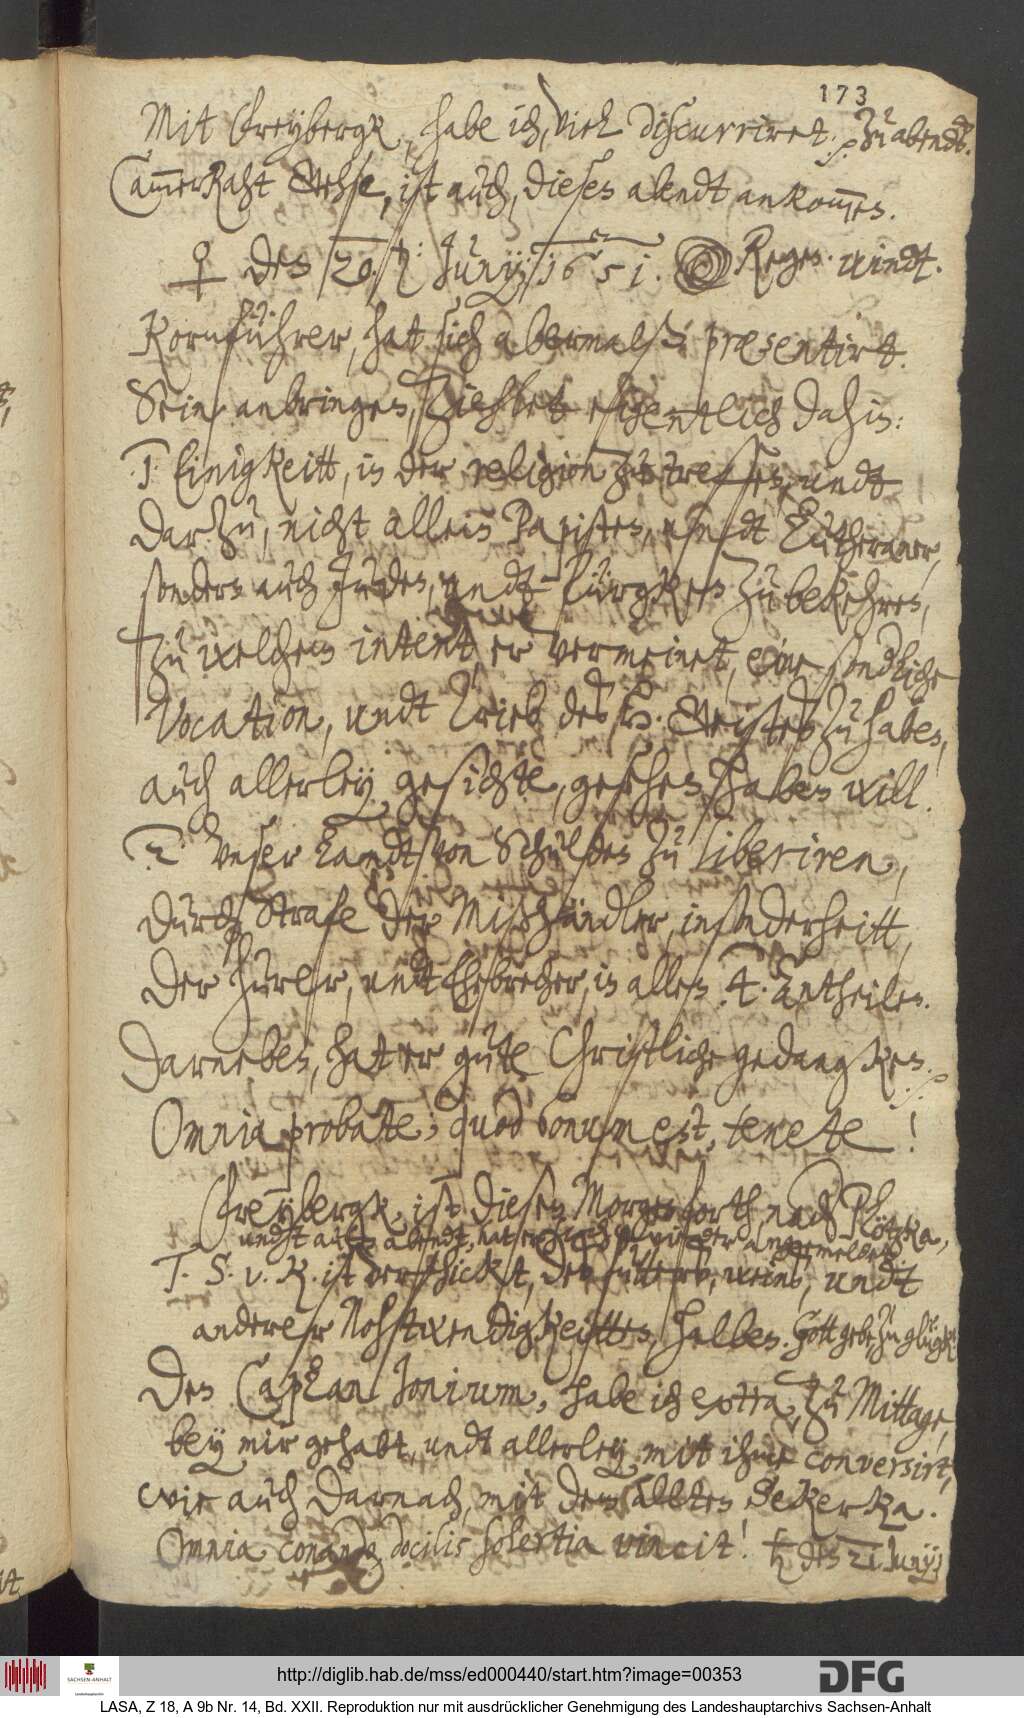 173
Mit Freybergk, habe ich, viel discurriret. Zu abendts.
CammerRaht Mechse, ist auch, dieses abendt ankommen.
♀ den 20. Junÿ: 1651. Regen. windt.
Kornführer, hat sich abermalß præsentirt.
Sein anbringen, ziehlet eigentlich dahin:
1. Einigkeitt, in der religion zu treffen, undt
darzu, nicht allein Papisten, undt Lutheraner,
sondern auch Juden, undt Türgken zu bekehren,
zu welchem intent, er vermeinet, eine sonderliche
Vocation, undt Trieb des h. Geistes zu haben,
auch allerley gesichte, gesehen haben will.
2. Unser Landt von Schulden zu liberiren,
durch Strafe der Mißhändler, insonderheitt,
der Hurer, undt Ehebrecher, in allen 4. Antheilen.
Darneben, hat er gute Christliche gedangken.
Omnia probate; quod bonum est, tenete!
Freybergk, ist diesen Morgen forth nach Plötzka,
undt auf den abendt, hat er sich wieder angemeldet.
T. S. v. R. ist verschickt, des futters, weins, undt
anderer Nohtwendigkeitten, halben. Gott gebe, zu glügk.
Den Caplan Jonium, habe ich extra, zu Mittage,
bey mir gehabt, undt allerley mitt ihme conversirt,
wie auch darnach, mit dem alten Sekerka.
Omnia conando docilis solertia vincit! ♄ den 21. Junÿ
http://diglib.hab.de/mss/ed000440/start.htm?image=00353
SACHSEN-ANHALT
Landeshauptarchiv
DFG
LASA, Z 18, A 9b Nr. 14, Bd. XXII. Reproduktion nur mit ausdrücklicher Genehmigung des Landeshauptarchivs Sachsen-Anhalt